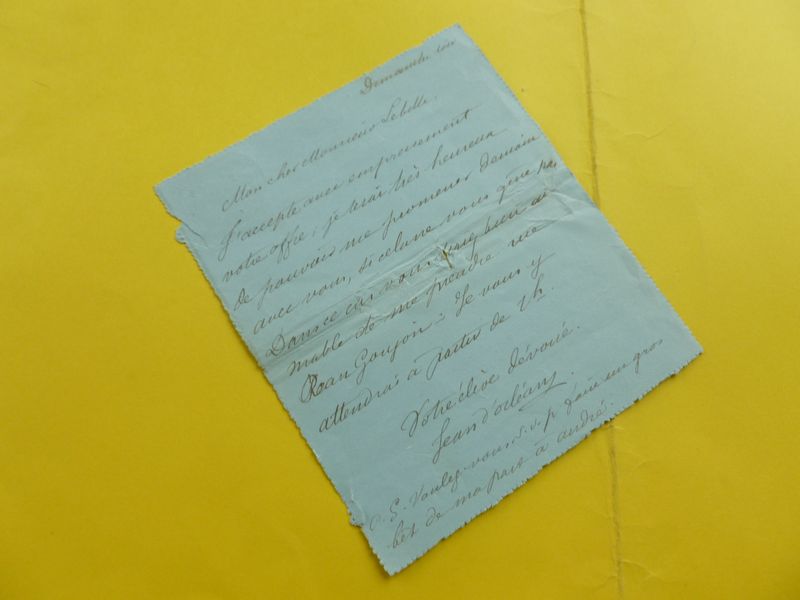 Dimanche soir
Mon cher Monsieur Lebelle.
J'accepte avec empressement
votre offre; je serai très heureux
de pouvoir me promener demain
avec vous, si cela ne vous gène pas
Dans ce cas vous bien ai
mable de me prendre rue
Jean Goujon. Je vous y
attendrai à partir de 2h.
Votre élève dévoué.
Jean d'orléans.
P. S. Voulez-vous s. v. p faire un gros
bec de ma part à andré.